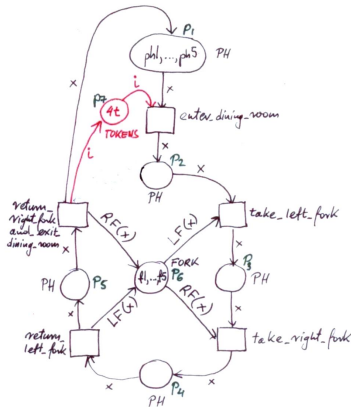 P1
ph1,...,ph5 PH
x
x
i
P7
4t
TOKENS
enter_dining_room
i
x
P2
x
PH
return_
right_fork
and_exit
dining_room
RF(x)
LF(x)
take_left_fork
x
x
FORK
P6
f1,..,f5
P3
PH
PH
P5
x
LF(x)
RF(x)
x
return_
left_fork
take_right_fork
x
x
P4
PH